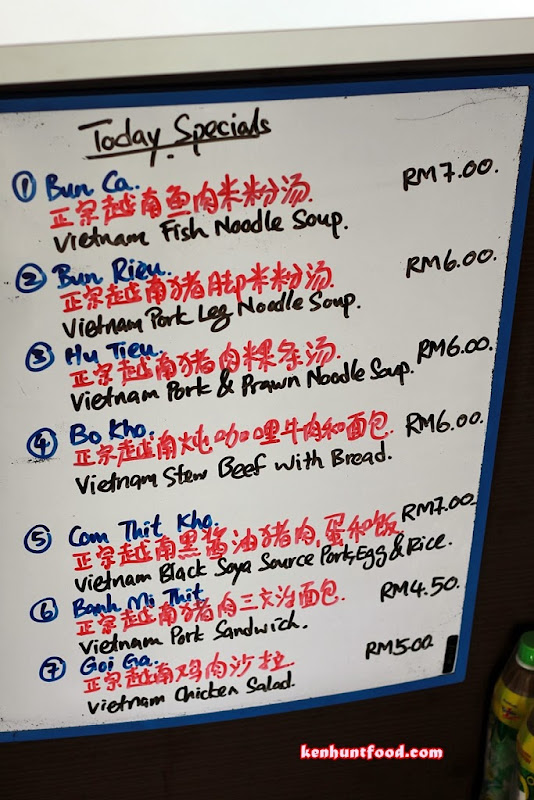 Today Specials
① Bun Ca. RM7.00.
正宗越南鱼肉米粉汤.
Vietnam Fish Noodle Soup.
② Bun Rieu. RM6.00.
正宗越南猪脚米粉汤.
Vietnam Pork Leg Noodle Soup.
③ Hu Tieu. RM6.00.
正宗越南猪肉粿条汤.
Vietnam Pork & Prawn Noodle Soup.
④ Bo Kho. RM6.00.
正宗越南炖咖哩牛肉和面包.
Vietnam Stew Beef with Bread.
⑤ Com Thit Kho. RM7.00
正宗越南黑酱油猪肉,蛋和饭
Vietnam Black Soya Source Pork,Egg & Rice.
⑥ Banh Mi Thit RM4.50.
正宗越南猪肉三文治面包.
Vietnam Pork Sandwich.
⑦ Goi Ga. RM5.00
正宗越南鸡肉沙拉
Vietnam Chicken Salad.
kenhuntfood.com